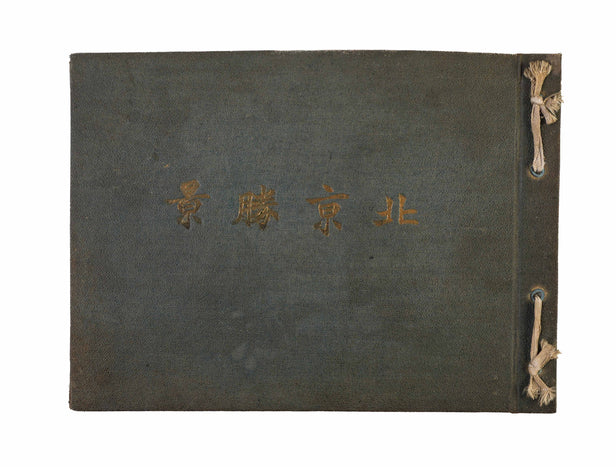 北京勝景